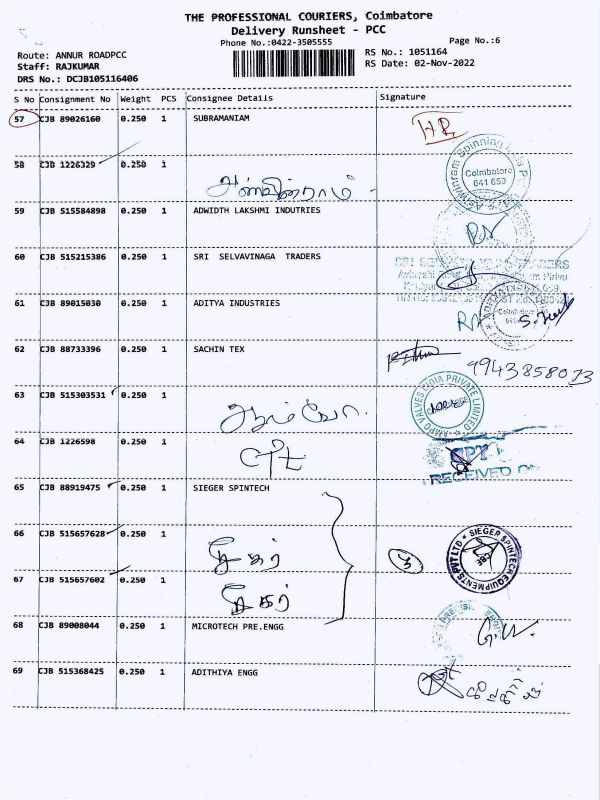 THE PROFESSIONAL COURIERS, Coimbatore
Delivery Runsheet - PCC
Phone No.:0422-3505555
Page No.:6
Route: ANNUR ROADPCC
RS No.: 1051164
Staff: RAJKUMAR
RS Date: 02-Nov-2022
DRS No.: DCJB105116406
S No Consignment No Weight PCS Consignee Details Signature
57 CJB 89026160 0.250 1 SUBRAMANIAM
58 CJB 1226329 0.250 1
Coimbatore
641 659
59 CJB 515584898 0.250 1 ADWIDTH LAKSHMI INDUTRIES
60 CJB 515215386 0.250 1 SRI SELVAVINAGA TRADERS
61 CJB 89015030 0.250 1 ADITYA INDUSTRIES
62 CJB 88733396 0.250 1 SACHIN TEX
9943858073
63 CJB 515303531 0.250 1
AMPO VALVES INDIA PRIVATE LIMITED
64 CJB 1226598 0.250 1
RECEIVED
65 CJB 88919475 0.250 1 SIEGER SPINTECH
66 CJB 515657628 0.250 1
SIEGER SPINTECH EQUIPMENTS PVT LTD
CBE
67 CJB 515657602 0.250 1
68 CJB 89008044 0.250 1 MICROTECH PRE.ENGG
69 CJB 515368425 0.250 1 ADITHIYA ENGG